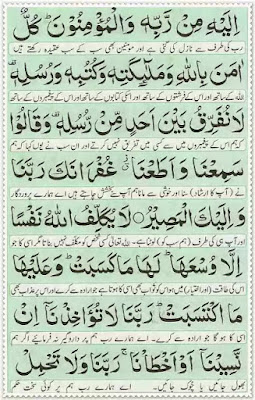 اِلَيْهِ مِنْ رَّبِّهٖ وَالْمُؤْمِنُوْنَ ؕ كُلٌّ
رب کی طرف سے نازل کی گئی ہے اور مومنین بھی سب کے سب عقیدہ رکھتے ہیں
اٰمَنَ بِاللّٰهِ وَمَلٰٓئِكَتِهٖ وَكُتُبِهٖ وَرُسُلِهٖ
اللہ کے ساتھ اور اس کے فرشتوں کے ساتھ اور اسکی کتابوں کے ساتھ اور اس کے پیغمبروں کے ساتھ
لَا نُفَرِّقُ بَيْنَ اَحَدٍ مِّنْ رُّسُلِهٖ ۫ وَقَالُوْا
کہ ہم اس کے پیغمبروں میں سے کسی میں تفریق نہیں کرتے اور ان سب نے یوں کہا کہ ہم
سَمِعْنَا وَاَطَعْنَا ۫ غُفْرَانَكَ رَبَّنَا
نے (آپ کا ارشاد) سنا اور خوشی سے مانا ہم آپ سے بخشش چاہتے ہیں اے ہمارے پروردگار
وَاِلَيْكَ الْمَصِيْرُ لَا يُكَلِّفُ اللّٰهُ نَفْسًا
اور آپ ہی کی طرف (ہم سب کو) لوٹنا ہے۔ اللہ تعالیٰ کسی شخص کو مکلف نہیں بناتا مگر اسی کا جو
اِلَّا وُسْعَهَا ؕ لَهَا مَا كَسَبَتْ وَعَلَيْهَا
اس کی طاقت (اور اختیار) میں ہو اس کو ثواب بھی اسی کا ہوتا ہے جو ارادہ سے کرے اور اس پر عذاب بھی
مَا اكْتَسَبَتْ ؕ رَبَّنَا لَا تُؤَاخِذْنَآ اِنْ
اسی کا ہو گا جو ارادہ سے کرے۔ اے ہمارے رب ہم پر دارو گیر نہ فرمائیے اگر ہم
نَّسِيْنَآ اَوْ اَخْطَاْنَا ۚ رَبَّنَا وَلَا تَحْمِلْ
بھول جائیں یا چوک جائیں۔ اے ہمارے رب ہم پر کوئی سخت حکم